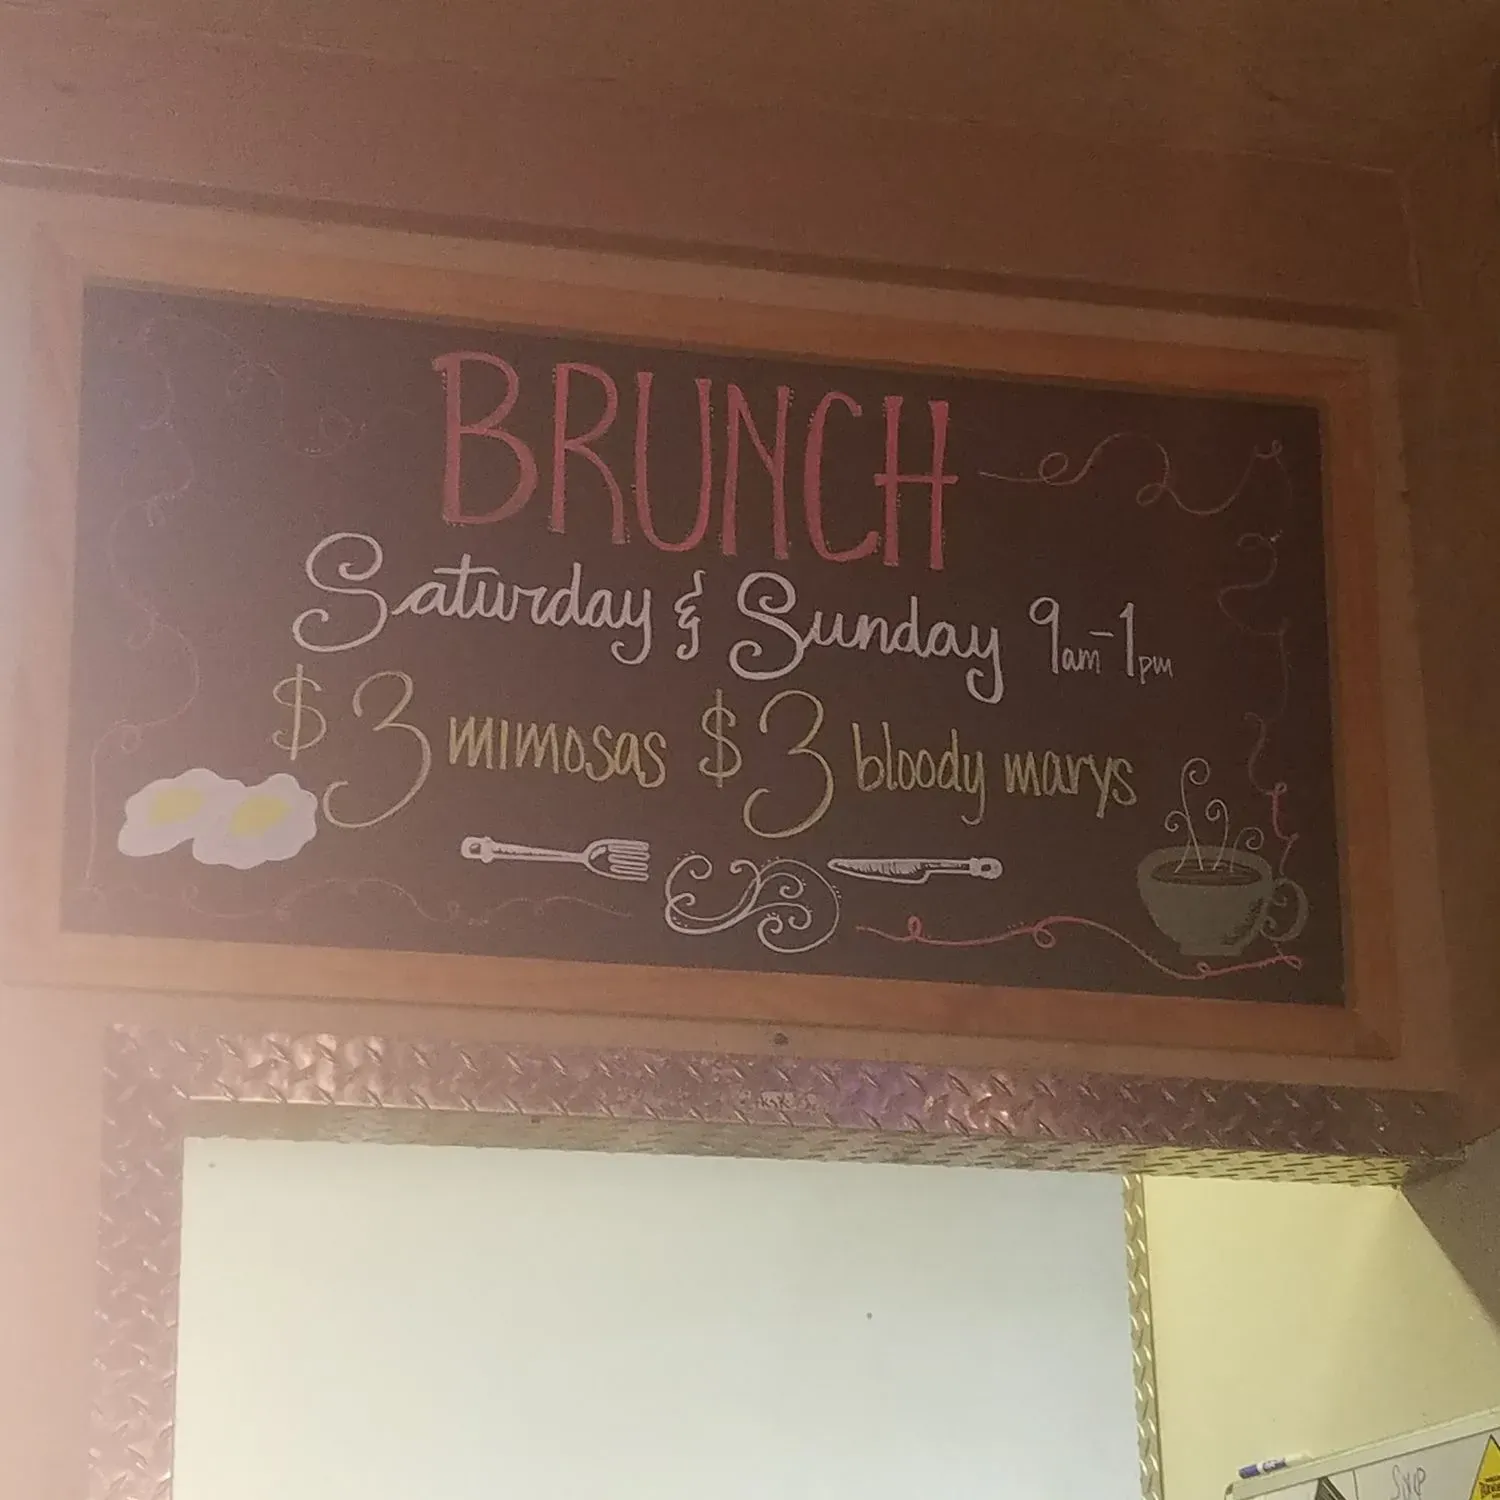 BRUNCH
Saturday & Sunday 9am-1pm
$3 mimosas $3 bloody marys